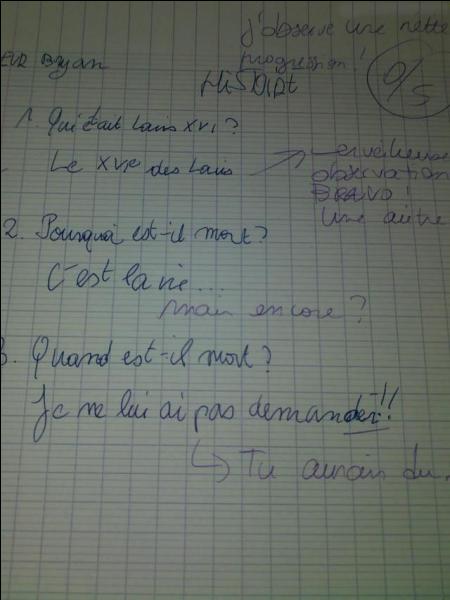 j'observe une nette
progression!
Bryan
0/5
HISTOIRE
1. Qui était Louis XVI ?
Le XVIe des Louis
observation
BRAVO!
une autre
2. Pourquoi est-il mort?
C'est la vie...
mais encore?
3. Quand est-il mort?
Je ne lui ai pas demander!!
Tu aurais du.